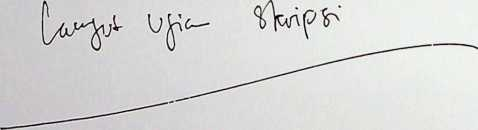 Lanjut Ujian Skripsi